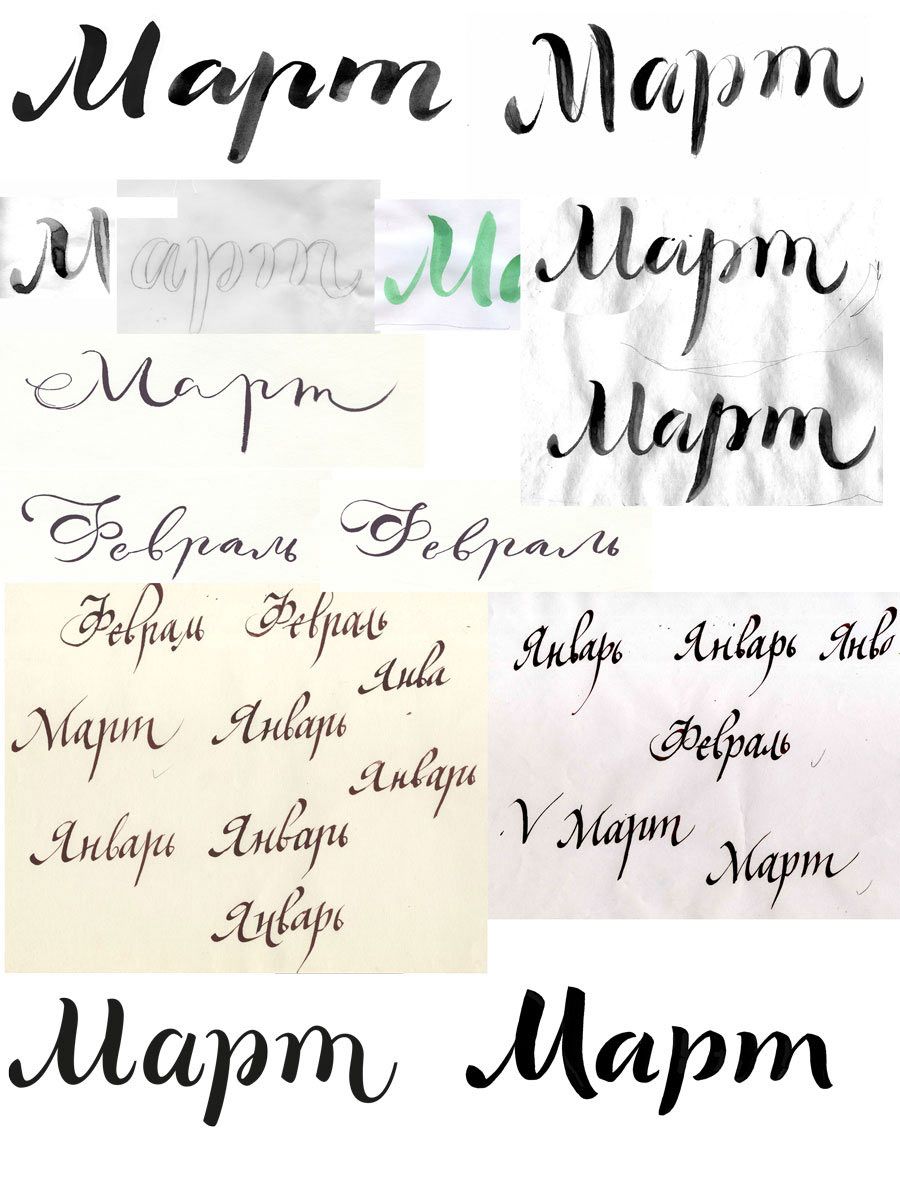 Март Март
М Март Ма Март
Март
Март
Февраль Февраль
Февраль Февраль
Янва
Март Январь
Январь
Январь Январь
Январь
Январь Январь Янва
Февраль
V Март
Март
Март Март